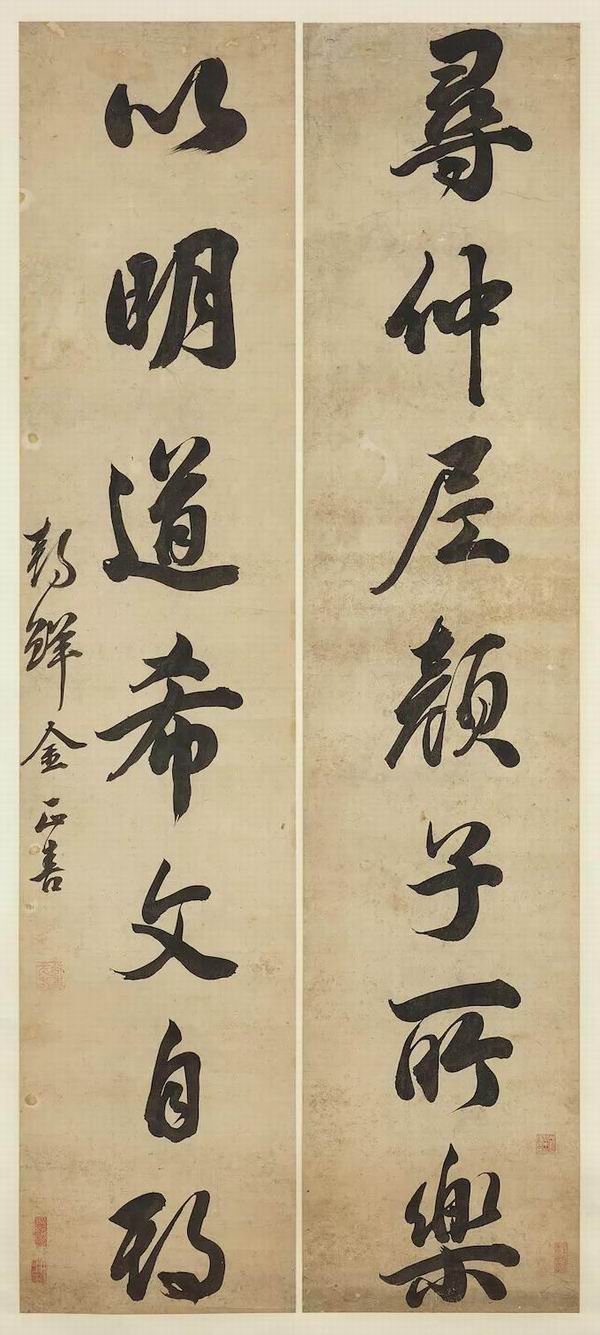 尋仲尼顏子所樂
以明道希文自期
朝鮮金正喜